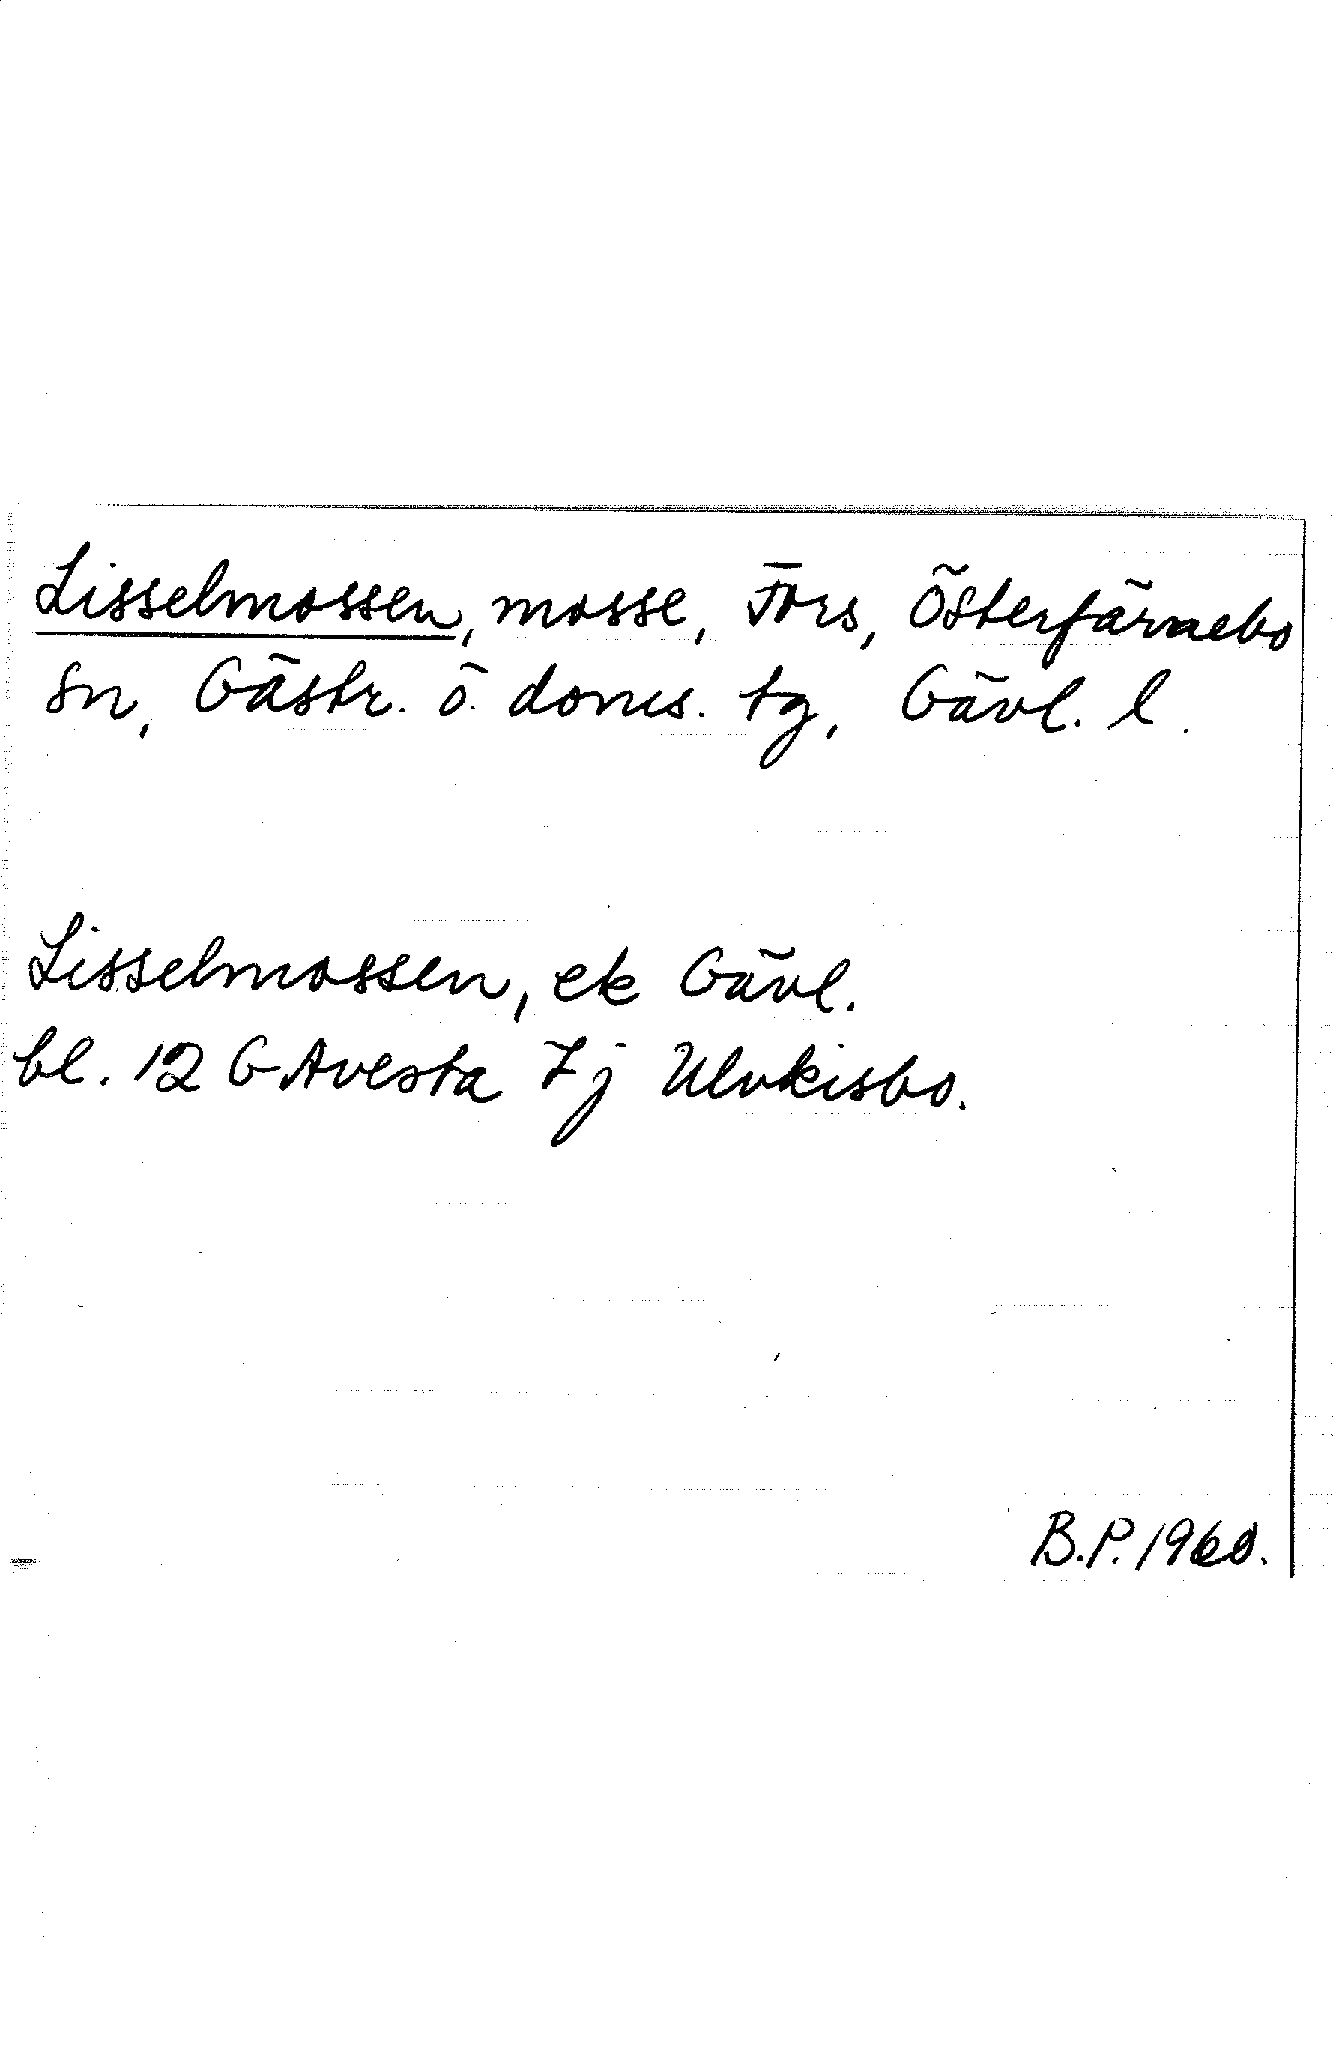 Lisselmossen, mosse, Fors, Österfärnebo
sn, Gästr. ö. doms. tg, Gävl. l.
Lisselmossen, ek Gävl.
bl. 12 G Avesta 7 j Ulvkisbo.
B.P. 1960.